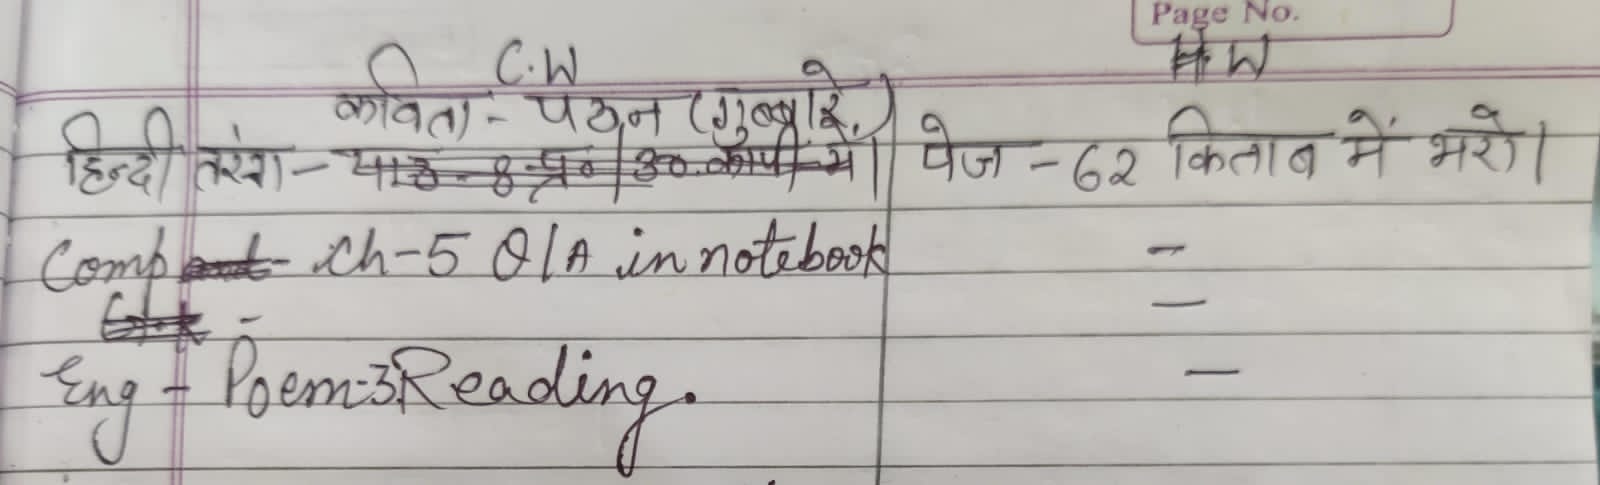 Page No.
C.W H.W
कविता - पठन (गुब्बारे)
हिन्दी तरंग - पाठ - 8 प्र०/उ०. कापी में। पेज - 62 किताब में भरो।
Comp - ch-5 Q/A in notebook -
- -
Eng - Poem-3 Reading. -